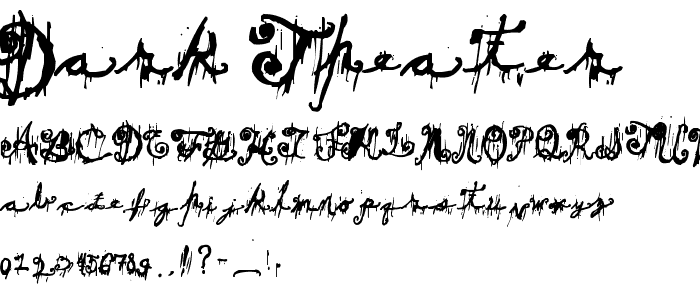 Dark Theater
ABCDEFGHIJKLMNOPQRSTUV
abcdefghijklmnopqrstuvwxyz
0123456789..!!?-_!.